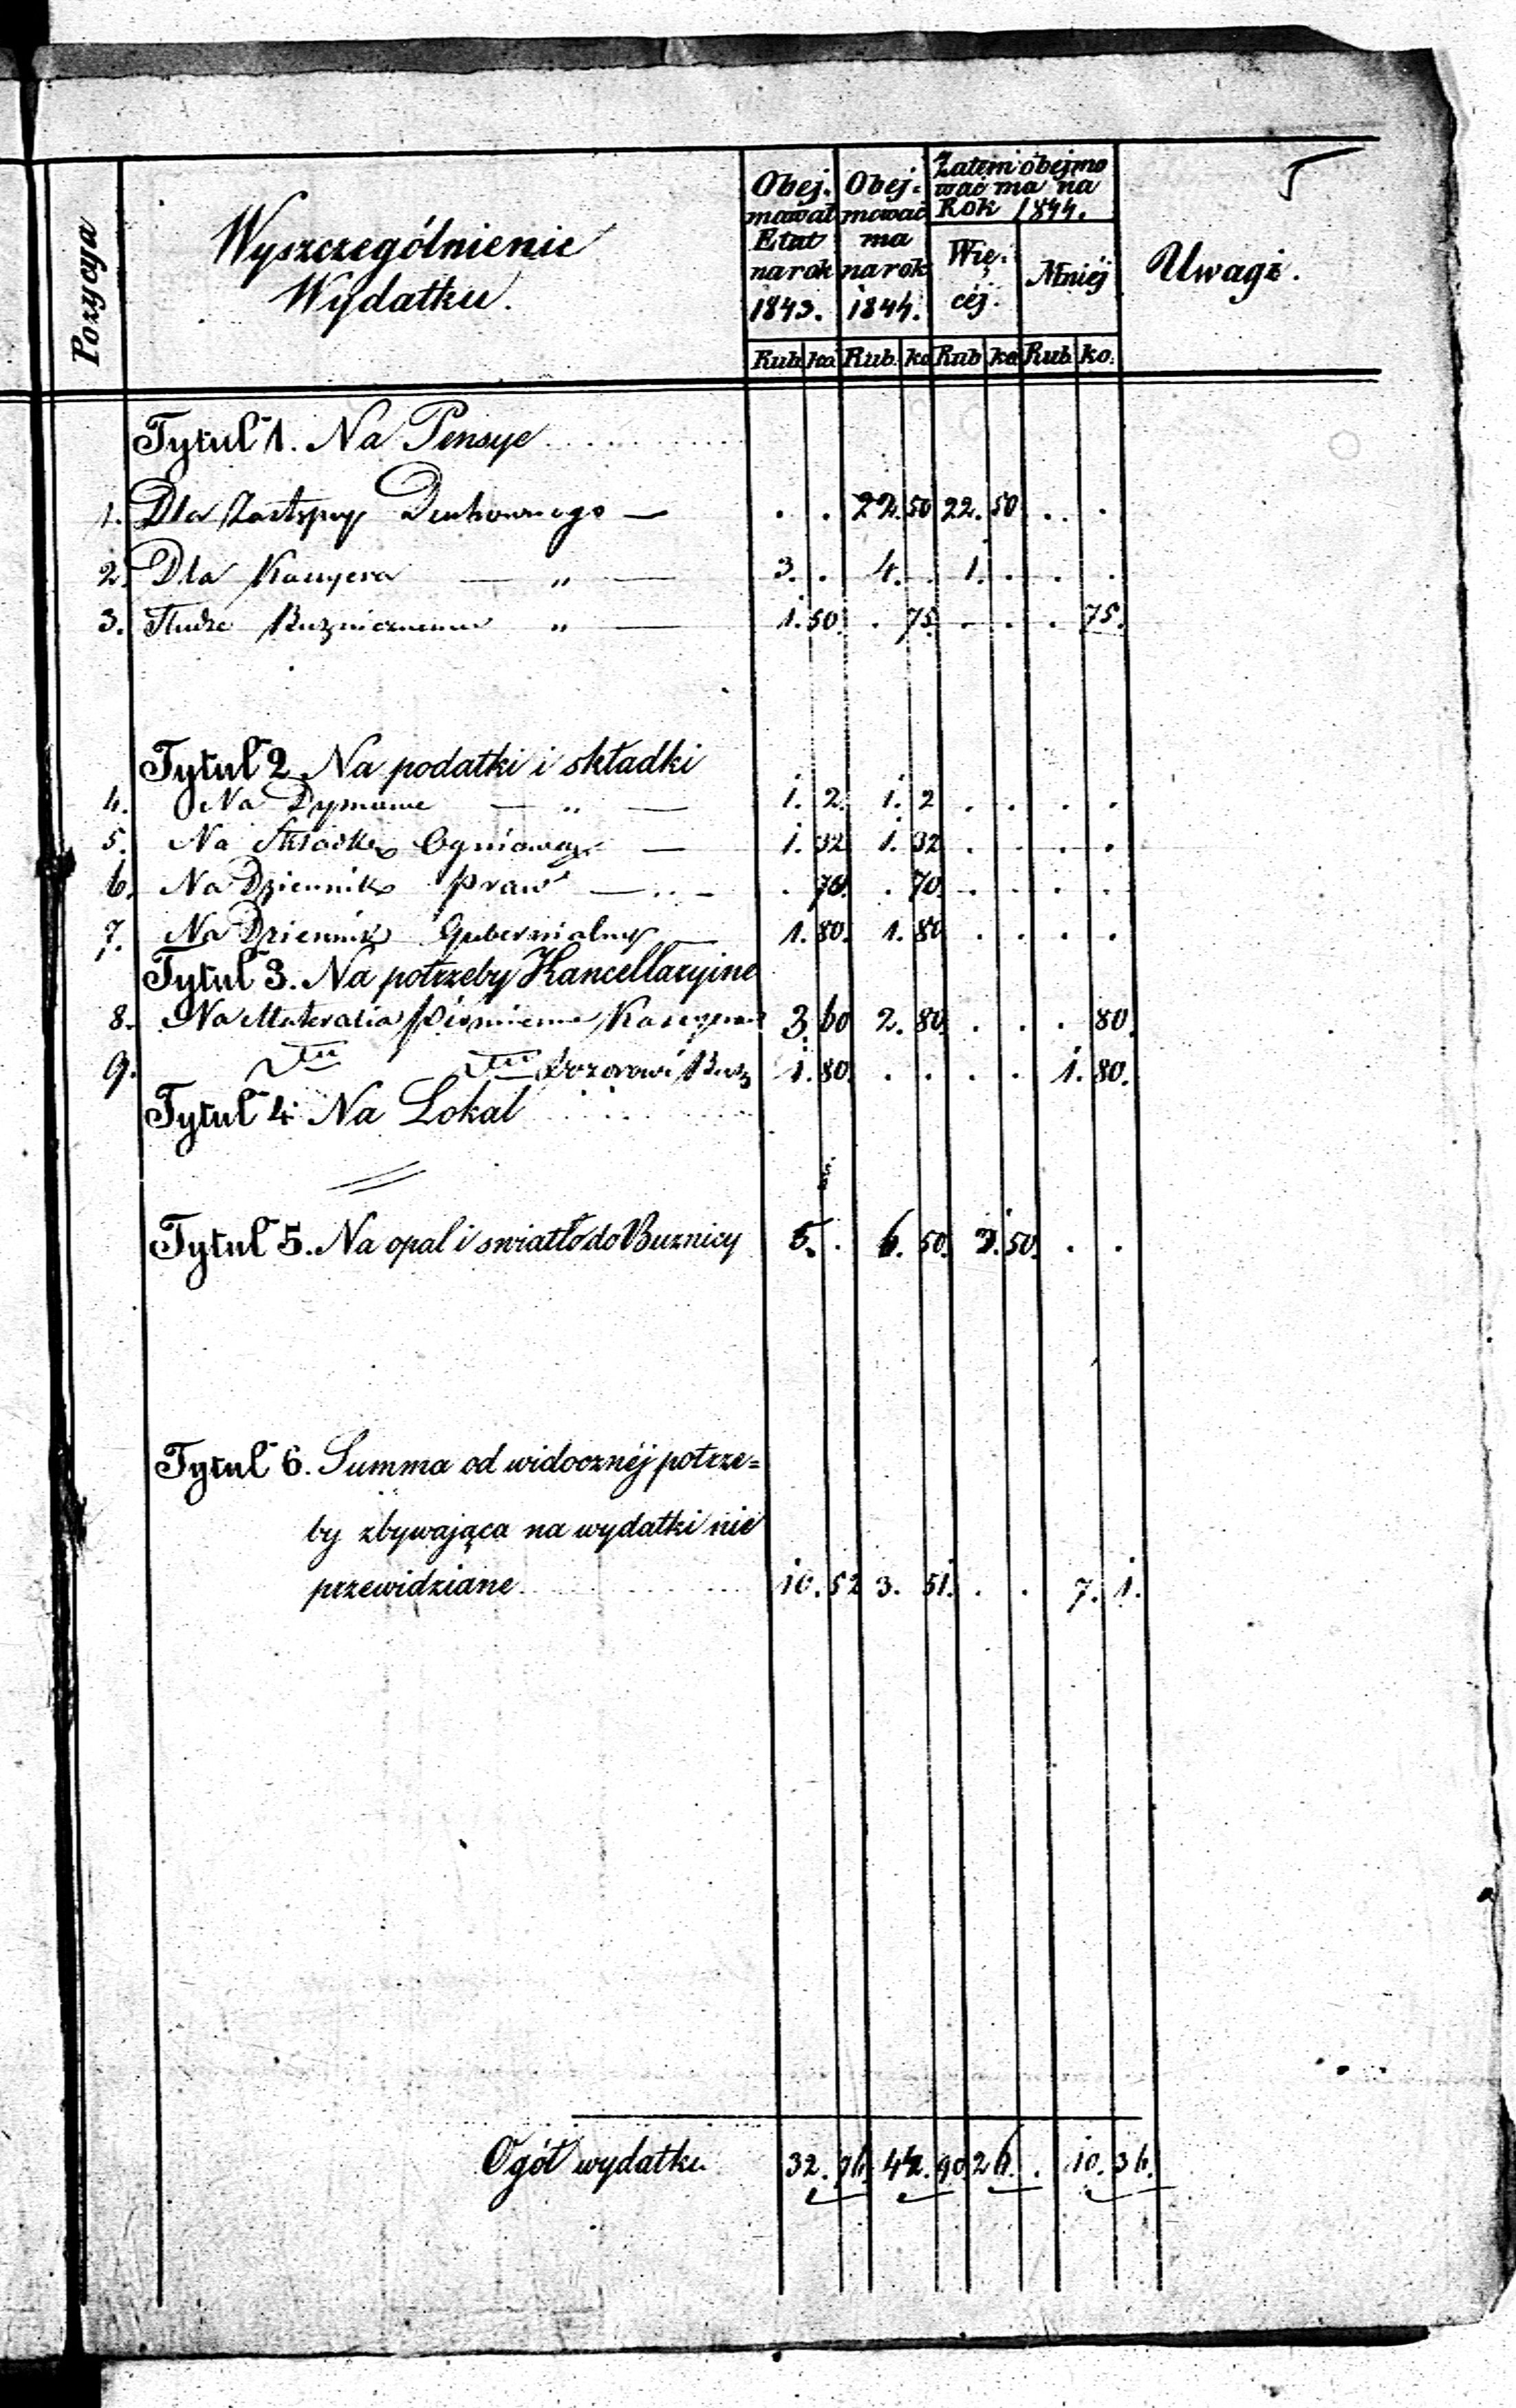 Pozycya
Wyszczególnienie
Wydatku.
Obej-
mował
Etat
na rok
1843.
Obej-
mować
ma
na rok
1844.
Zatem obejmo
wać ma na
Rok 1844.
Wię-
céj.
Mniéj
Uwagi.
Rub. ko. Rub. ko Rub ko Rub. ko.
Tytuł 1. Na Pensye
1. Dla Zastępcy Duchownego — . . 22. 50 22. 50 . . .
2. Dla Kassyera — „ — 3. . 4. . 1. . . .
3. Słudze Bużnicznemu „ — 1. 50. . 75. . . . 75.
Tytuł 2 Na podatki i składki
4. Na Dymowe — „ — 1. 2. 1. 2 . . . .
5. Na Składkę Ogniową — 1. 32 1. 32 . . . .
6. Na Dziennik Praw — „ — . 70. . 70. . . . .
7. Na Dziennik Gubernialny — 1. 80. 1. 80 . . . .
Tytuł 3. Na potrzeby Kancellaryjne
8. Na Materalia Piśmienne Kassyerowi 3. 60 2. 80. . . . 80.
9. Dozorowi Buż 1. 80. . . . . 1. 80.
Tytuł 4. Na Lokal
Tytuł 5. Na opal i swiatło do Buznicy 5. . 6. 50. 50. . .
Tytuł 6. Summa od widocznéj potrze=
by zbywająca na wydatki nie
przewidziane 10. 52 3. 51. . . 7. 1.
Ogół wydatku 32. 90 26. . 10. 36.